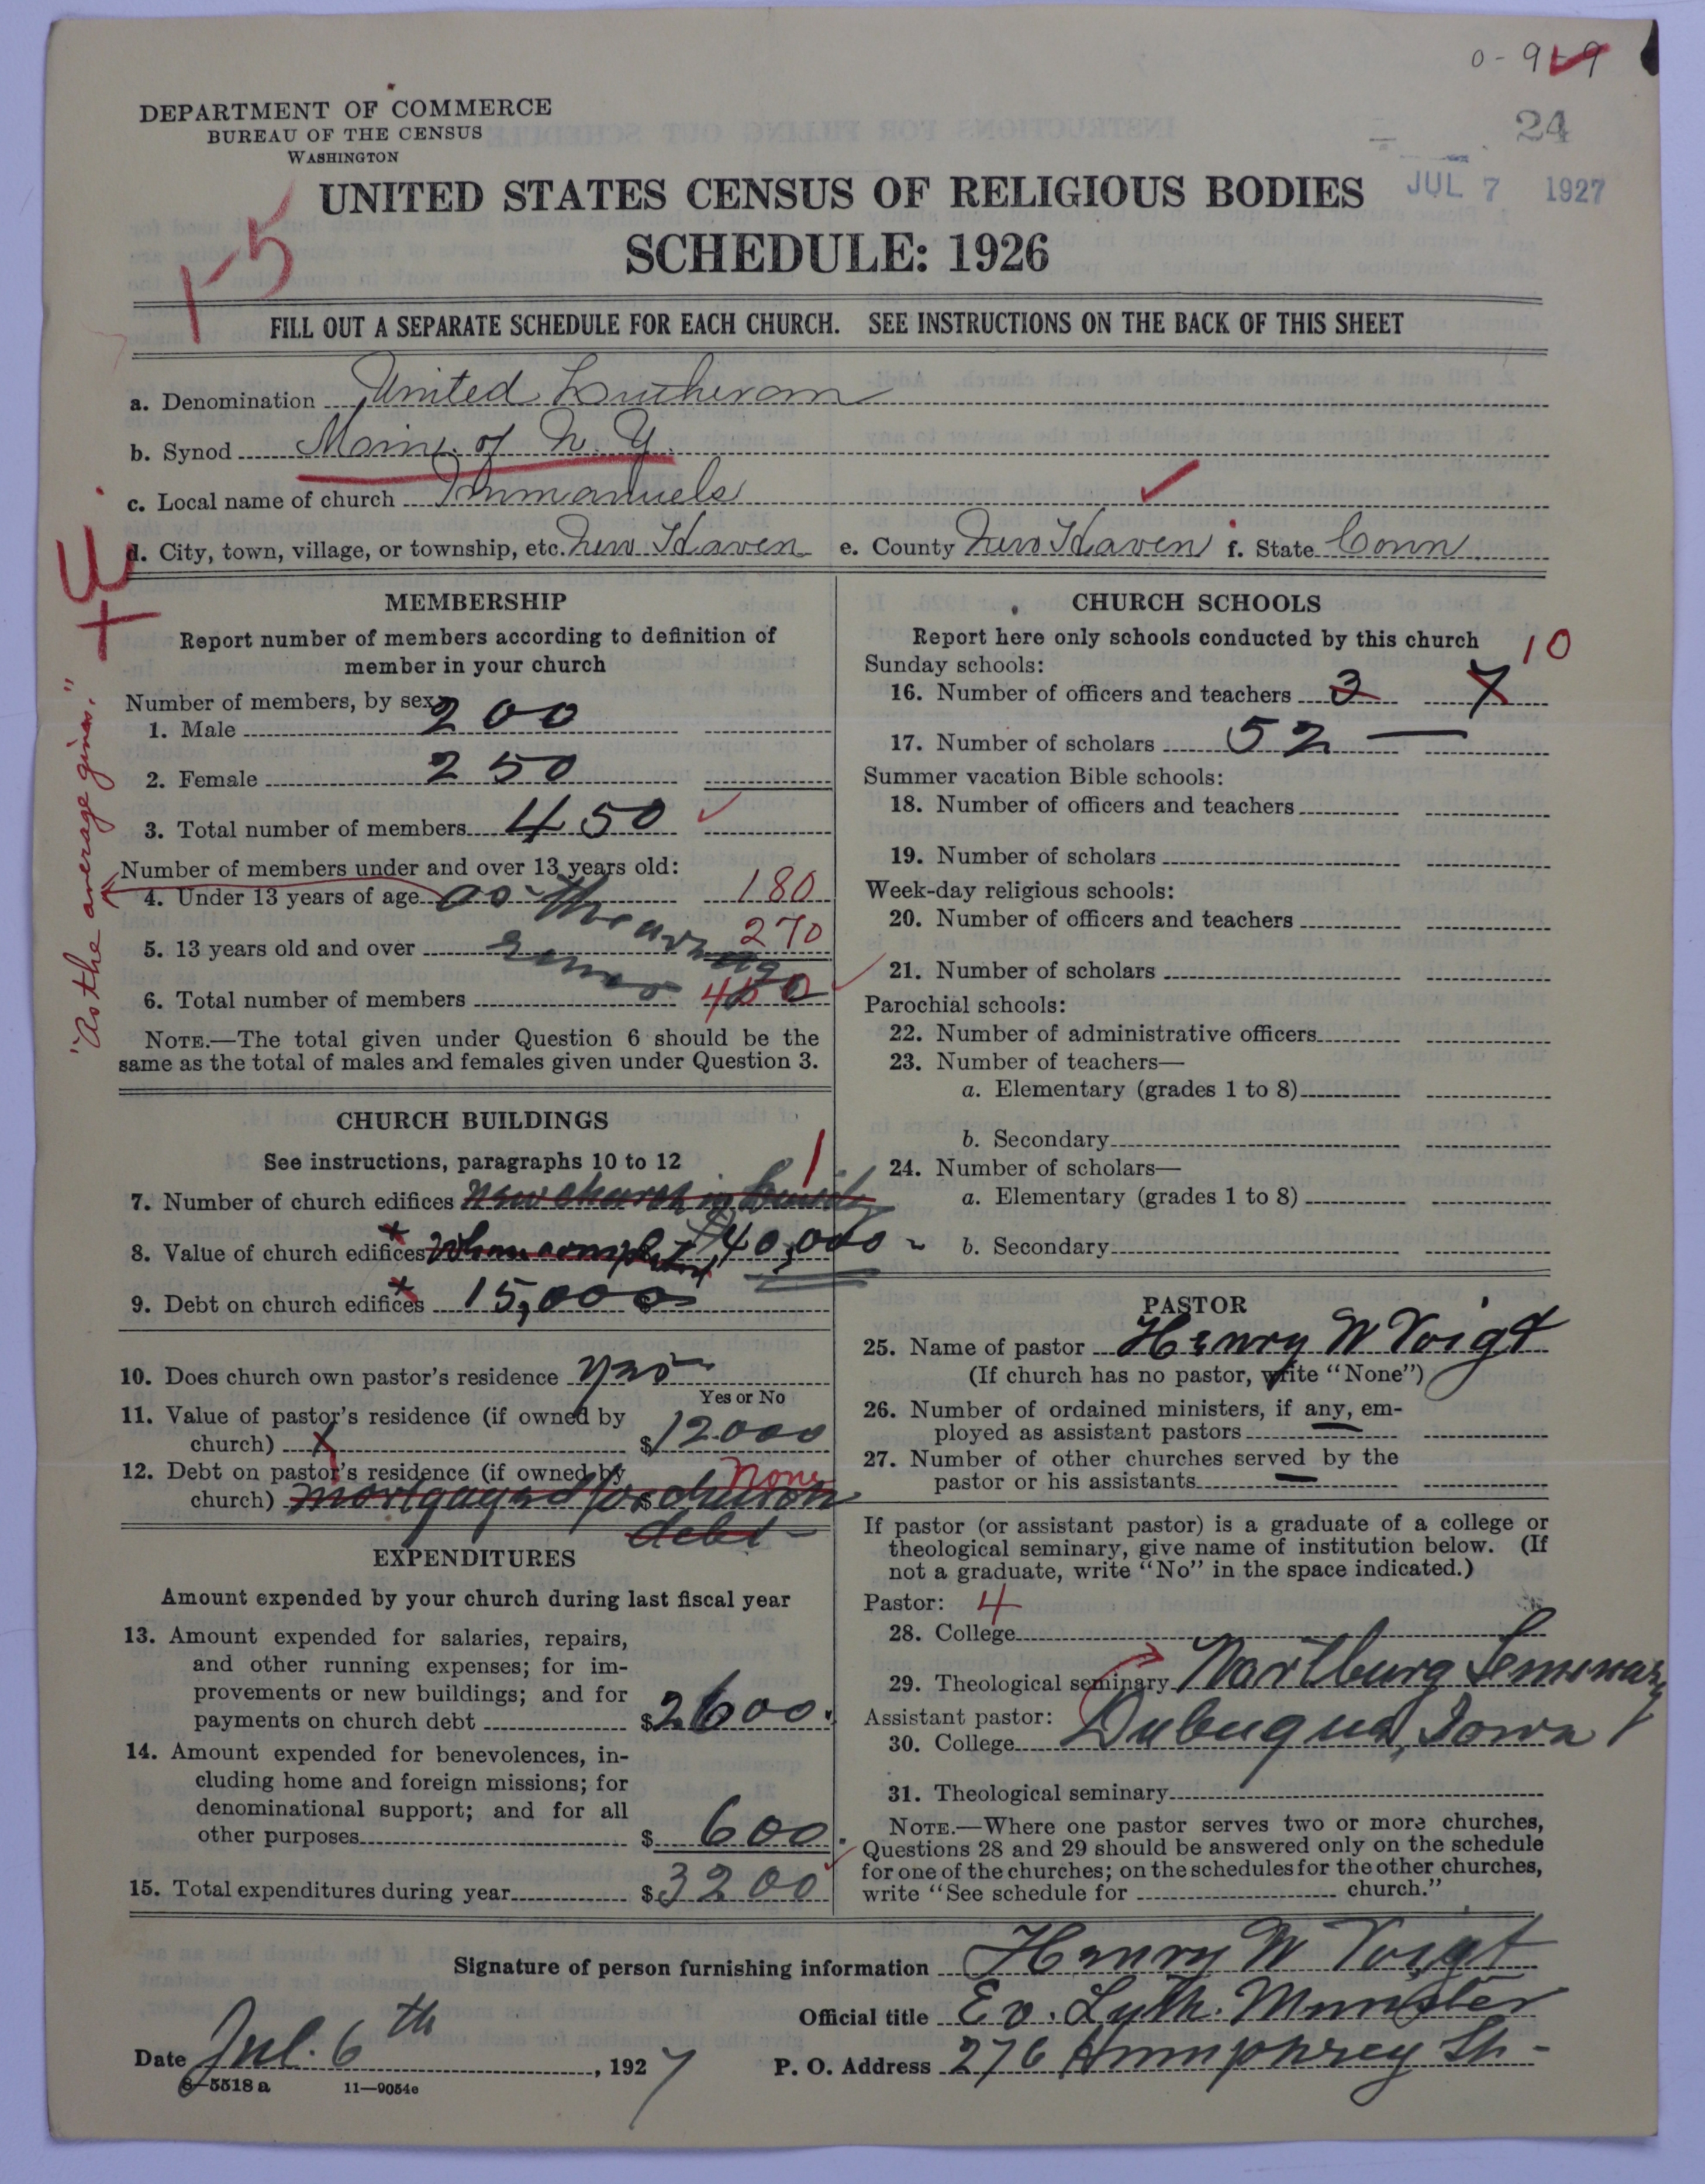 0-9 9
24
DEPARTMENT OF COMMERCE
BUREAU OF THE CENSUS
WASHINGTON
JUL 7 1927
UNITED STATES CENSUS OF RELIGIOUS BODIES
SCHEDULE: 1926
1-5
FILL OUT A SEPARATE SCHEDULE FOR EACH CHURCH. SEE INSTRUCTIONS ON THE BACK OF THIS SHEET
a. Denomination United Lutheran
b. Synod of N. Y.
c. Local name of church Immanuels
d. City, town, village, or township, etc. New Haven e. County New Haven f. State Conn
MEMBERSHIP
Report number of members according to definition of
member in your church
Number of members, by sex:
1. Male 200
2. Female 250
3. Total number of members 450
Number of members under and over 13 years old:
4. Under 13 years of age as the 180
5. 13 years old and over average 270
6. Total number of members gives 450
"As the average gives."
NOTE.—The total given under Question 6 should be the
same as the total of males and females given under Question 3.
CHURCH BUILDINGS
See instructions, paragraphs 10 to 12
7. Number of church edifices new church in 1
8. Value of church edifices when completed $40,000
9. Debt on church edifices 15,000
10. Does church own pastor's residence yes
Yes or No
11. Value of pastor's residence (if owned by
church) $12000
12. Debt on pastor's residence (if owned by
church) mortgaged for $ church none
debt
EXPENDITURES
Amount expended by your church during last fiscal year
13. Amount expended for salaries, repairs,
and other running expenses; for im-
provements or new buildings; and for
payments on church debt $2600.
14. Amount expended for benevolences, in-
cluding home and foreign missions; for
denominational support; and for all
other purposes $600.
15. Total expenditures during year $3200
CHURCH SCHOOLS
Report here only schools conducted by this church
Sunday schools: 10
16. Number of officers and teachers 3 7
17. Number of scholars 52 —
Summer vacation Bible schools:
18. Number of officers and teachers
19. Number of scholars
Week-day religious schools:
20. Number of officers and teachers
21. Number of scholars
Parochial schools:
22. Number of administrative officers
23. Number of teachers—
a. Elementary (grades 1 to 8)
b. Secondary
24. Number of scholars—
a. Elementary (grades 1 to 8)
b. Secondary
PASTOR
25. Name of pastor Henry W Voigt
(If church has no pastor, write "None")
26. Number of ordained ministers, if any, em-
ployed as assistant pastors —
27. Number of other churches served by the
pastor or his assistants —
If pastor (or assistant pastor) is a graduate of a college or
theological seminary, give name of institution below. (If
not a graduate, write "No" in the space indicated.)
Pastor: 4
28. College
29. Theological seminary Wartburg Seminary
Assistant pastor:
30. College Dubuque, Iowa
31. Theological seminary
NOTE.—Where one pastor serves two or more churches,
Questions 28 and 29 should be answered only on the schedule
for one of the churches; on the schedules for the other churches,
write "See schedule for church."
Signature of person furnishing information Henry W Voigt
Official title Ev. Luth. Minister
Date Jul. 6th, 1927 P. O. Address 276 Humphrey St.
8—5518 a 11—9054e